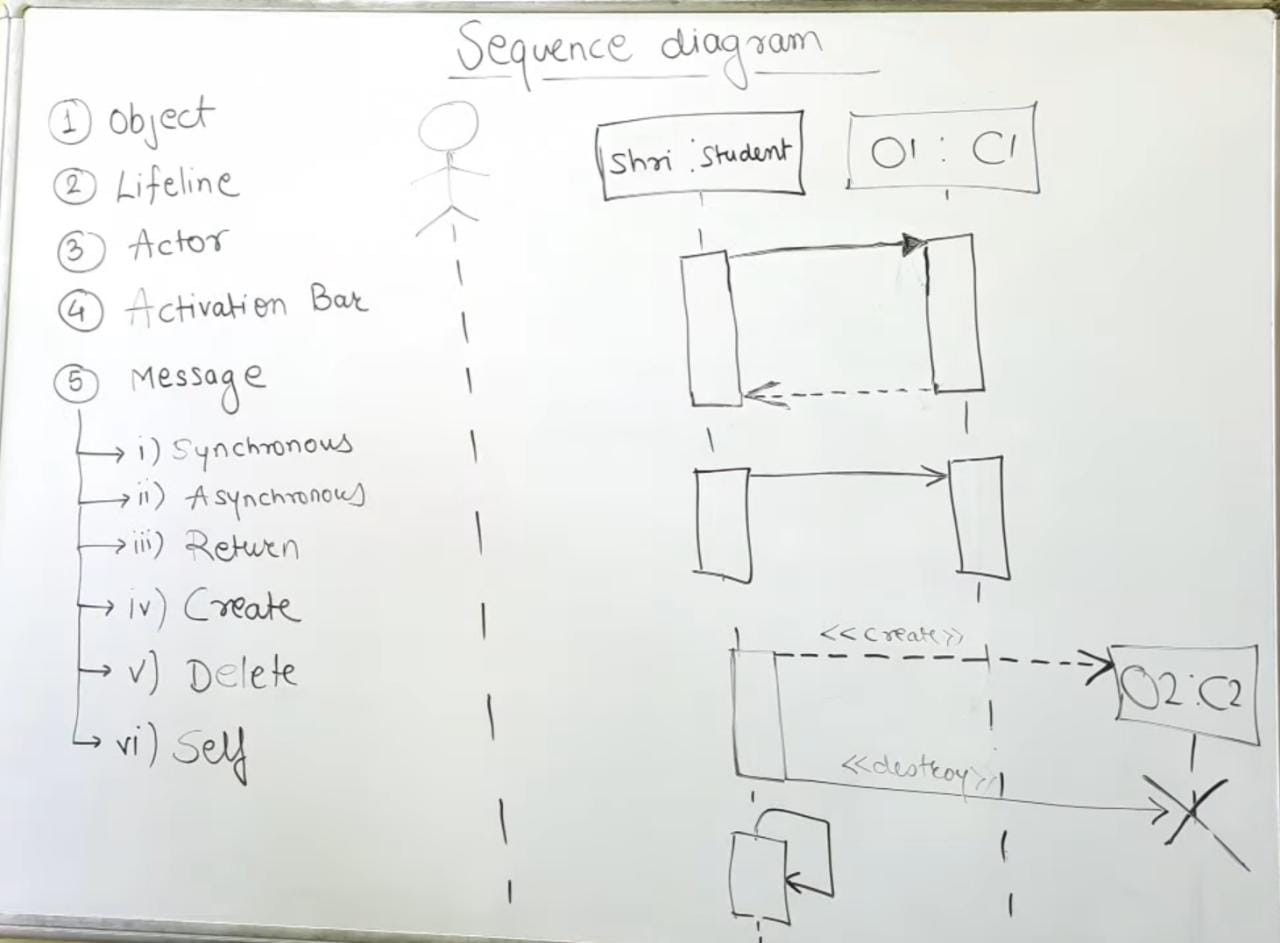 Sequence diagram
① Object
② Lifeline
③ Actor
④ Activation Bar
⑤ Message
i) Synchronous
ii) Asynchronous
iii) Return
iv) Create
v) Delete
vi) Self
Shri : Student
O1 : C1
<<create>>
O2 : C2
<<destroy>>